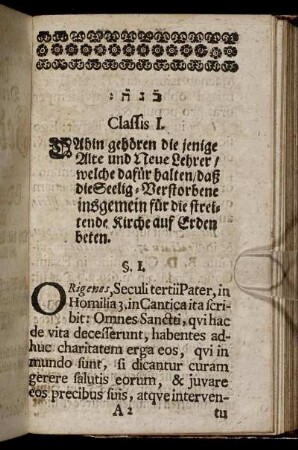 Classis I.
DAhin gehören die jenige
Alte und Neue Lehrer /
welche dafür halten / daß
die Seelig-Verstorbene
insgemein für die strei-
tende Kirche auf Erden
beten.
§. I.
ORigenes, Seculi tertii Pater, in
Homilia 3. in Cantica ita scri-
bit: Omnes Sancti, qvi hac
de vita decesserunt, habentes ad-
huc charitatem erga eos, qvi in
mundo sunt, si dicantur curam
gerere salutis eorum, & juvare
eos precibus suis, atqve interven-
A 2 tu